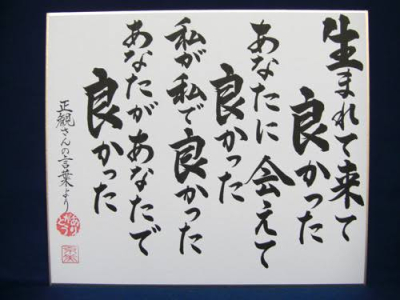 生まれて来て
良かった
あなたに会えて
良かった
私が私で良かった
あなたがあなたで
良かった
正観さんの言葉より
ありがとう